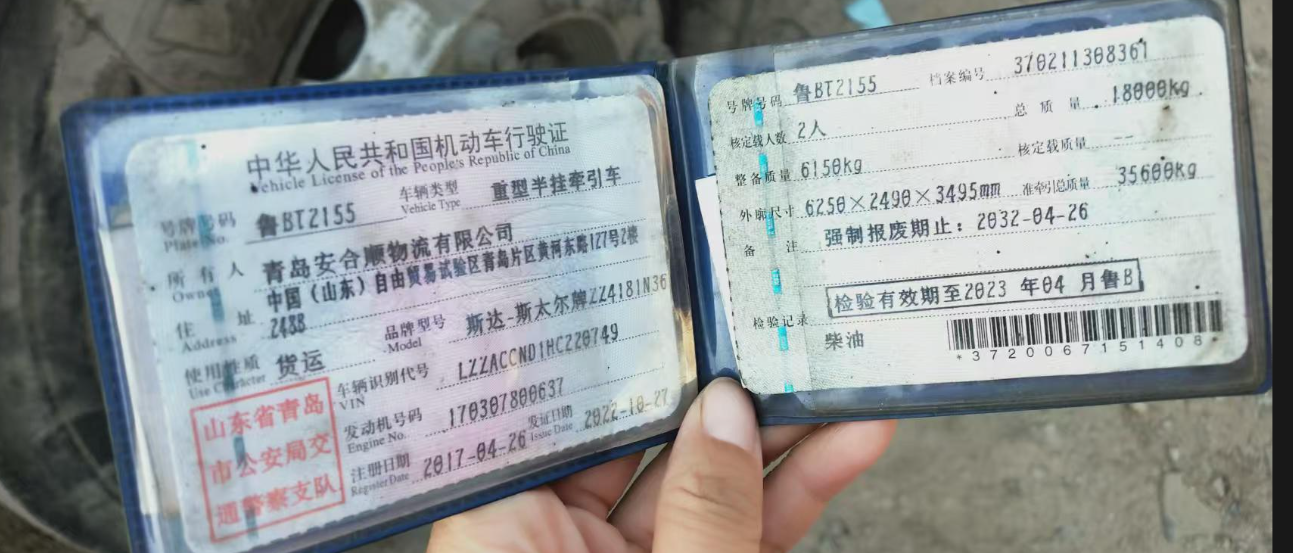 中华人民共和国机动车行驶证
Vehicle License of the People's Republic of China
号牌号码 鲁BT2155 车辆类型 重型半挂牵引车
Plate No. Vehicle Type
所有人 青岛安合顺物流有限公司
Owner
住址 中国(山东)自由贸易试验区青岛片区黄河东路127号2楼
Address 2488
使用性质 货运 品牌型号 斯达-斯太尔牌ZZ4181N36
Use Character Model
车辆识别代号 LZZACCND1HC220749
VIN
发动机号码 170307800637
Engine No.
注册日期 2017-04-26 发证日期 2022-10-27
Register Date Issue Date
山东省青岛
市公安局交
通警察支队
号牌号码 鲁BT2155 档案编号 370211308361
核定载人数 2人 总质量 18000kg
整备质量 6150kg 核定载质量 --
外廓尺寸 6250×2490×3495mm 准牵引总质量 35600kg
备注 强制报废期止：2032-04-26
检验有效期至2023 年04 月鲁B
检验记录
柴油
*3720067151408*